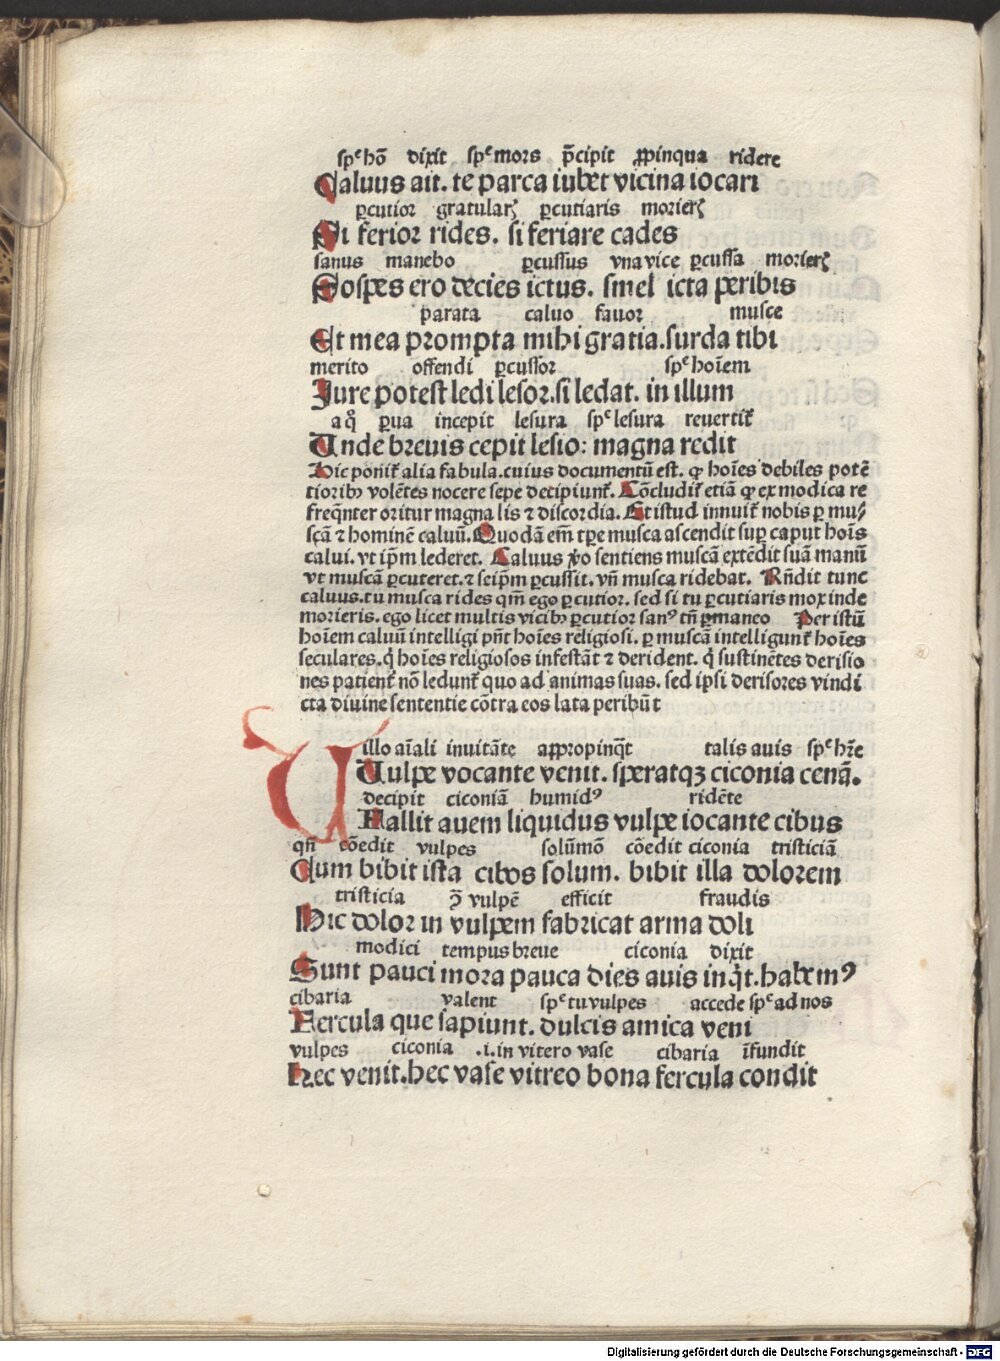 spᵉ hō dixit spᵉ mors p̄cipit ꝓpinqua ridere
Caluus ait. te parca iubet vicina iocari
ꝑcutior gratularꝭ ꝑcutiaris morierꝭ
Si ferior rides. si feriare cades
sanus manebo ꝑcussus vna vice ꝑcussa morierꝭ
Sospes ero decies ictus. smel icta peribis
parata caluo fauor musce
Et mea prompta mihi gratia.surda tibi
merito offendi ꝑcussor spᵉ hoīem
Jure potest ledi lesor.si ledat. in illum
a qͦ ꝑua incepit lesura spᵉ lesura reuertit᷑
Unde breuis cepit lesio: magna redit
Hic ponit᷑ alia fabula.cuius documentū est. ꝙ hoīes debiles potē
tiorib⁹ volētes nocere sepe decipiunt᷑. Cōcludit᷑ etiā ꝙ ex modica re
freq̄nter oritur magna lis ⁊ discordia. Et istud innuit᷑ nobis ꝑ mu⸗
scā ⁊ hominē caluū. Quodā em̄ tp̄e musca ascendit suꝑ caput hoīs
calui. vt ip̄m lederet. Caluus v̊o sentiens muscā extēdit suā manū
vt muscā ꝑcuteret.⁊ seip̄m ꝑcussit. vn̄ musca ridebat. Rn̄dit tunc
caluus.tu musca rides qm̄ ego ꝑcutior. sed si tu ꝑcutiaris mox inde
morieris. ego licet multis vicib⁹ ꝑcutior san⁹ tn̄ ꝑmaneo Per istū
hoīem caluū intelligi pn̄t hoīes religiosi. ꝑ muscā intelligunt᷑ hoīes
seculares.q̇ hoīes religiosos infestāt ⁊ derident. q̇ sustinētes derisio
nes patient᷑ nō ledunt᷑ quo ad animas suas. sed ipsi derisores vindi
cta diuine sententie cōtra eos lata peribūt
illo aīali inuitāte appropinq̄t talis auis spᵉ hr̄e
U Vulpe vocante venit. speratqꝫ ciconia cenā.
decipit ciconiā humid⁹ ridēte
Fallit auem liquidus vulpe iocante cibus
qn̄ cōedit vulpes solūmō cōedit ciconia tristiciā
Cum bibit ista cibos solum. bibit illa dolorem
tristicia ꝯ̄ vulpē efficit fraudis
Hic dolor in vulpem fabricat arma doli
modici tempus breue ciconia dixit
Sunt pauci mora pauca dies auis inq̇t.habem⁹
cibaria valent spᵉ tu vulpes accede spᵉ ad nos
Fercula que sapiunt. dulcis amica veni
vulpes ciconia .i.in vitero vase cibaria īfundit
Hec venit.hec vase vitreo bona fercula condit
Digitalisierung gefördert durch die Deutsche Forschungsgemeinschaft - DFG